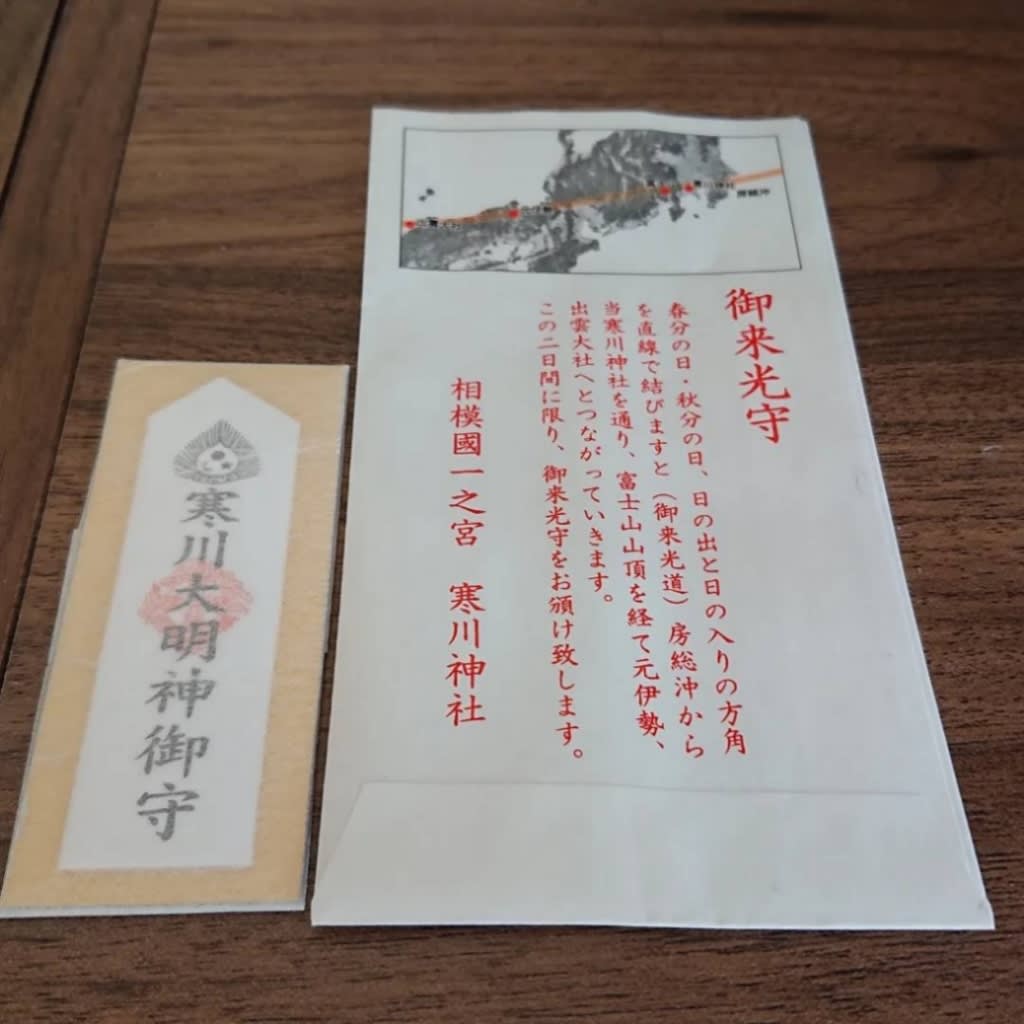 寒川大明神御守
御来光守
春分の日・秋分の日、日の出と日の入りの方角
を直線で結びますと（御来光道）房総沖から
当寒川神社を通り、富士山山頂を経て元伊勢、
出雲大社へとつながっていきます。
この二日間に限り、御来光守をお頒け致します。
相模國一之宮 寒川神社